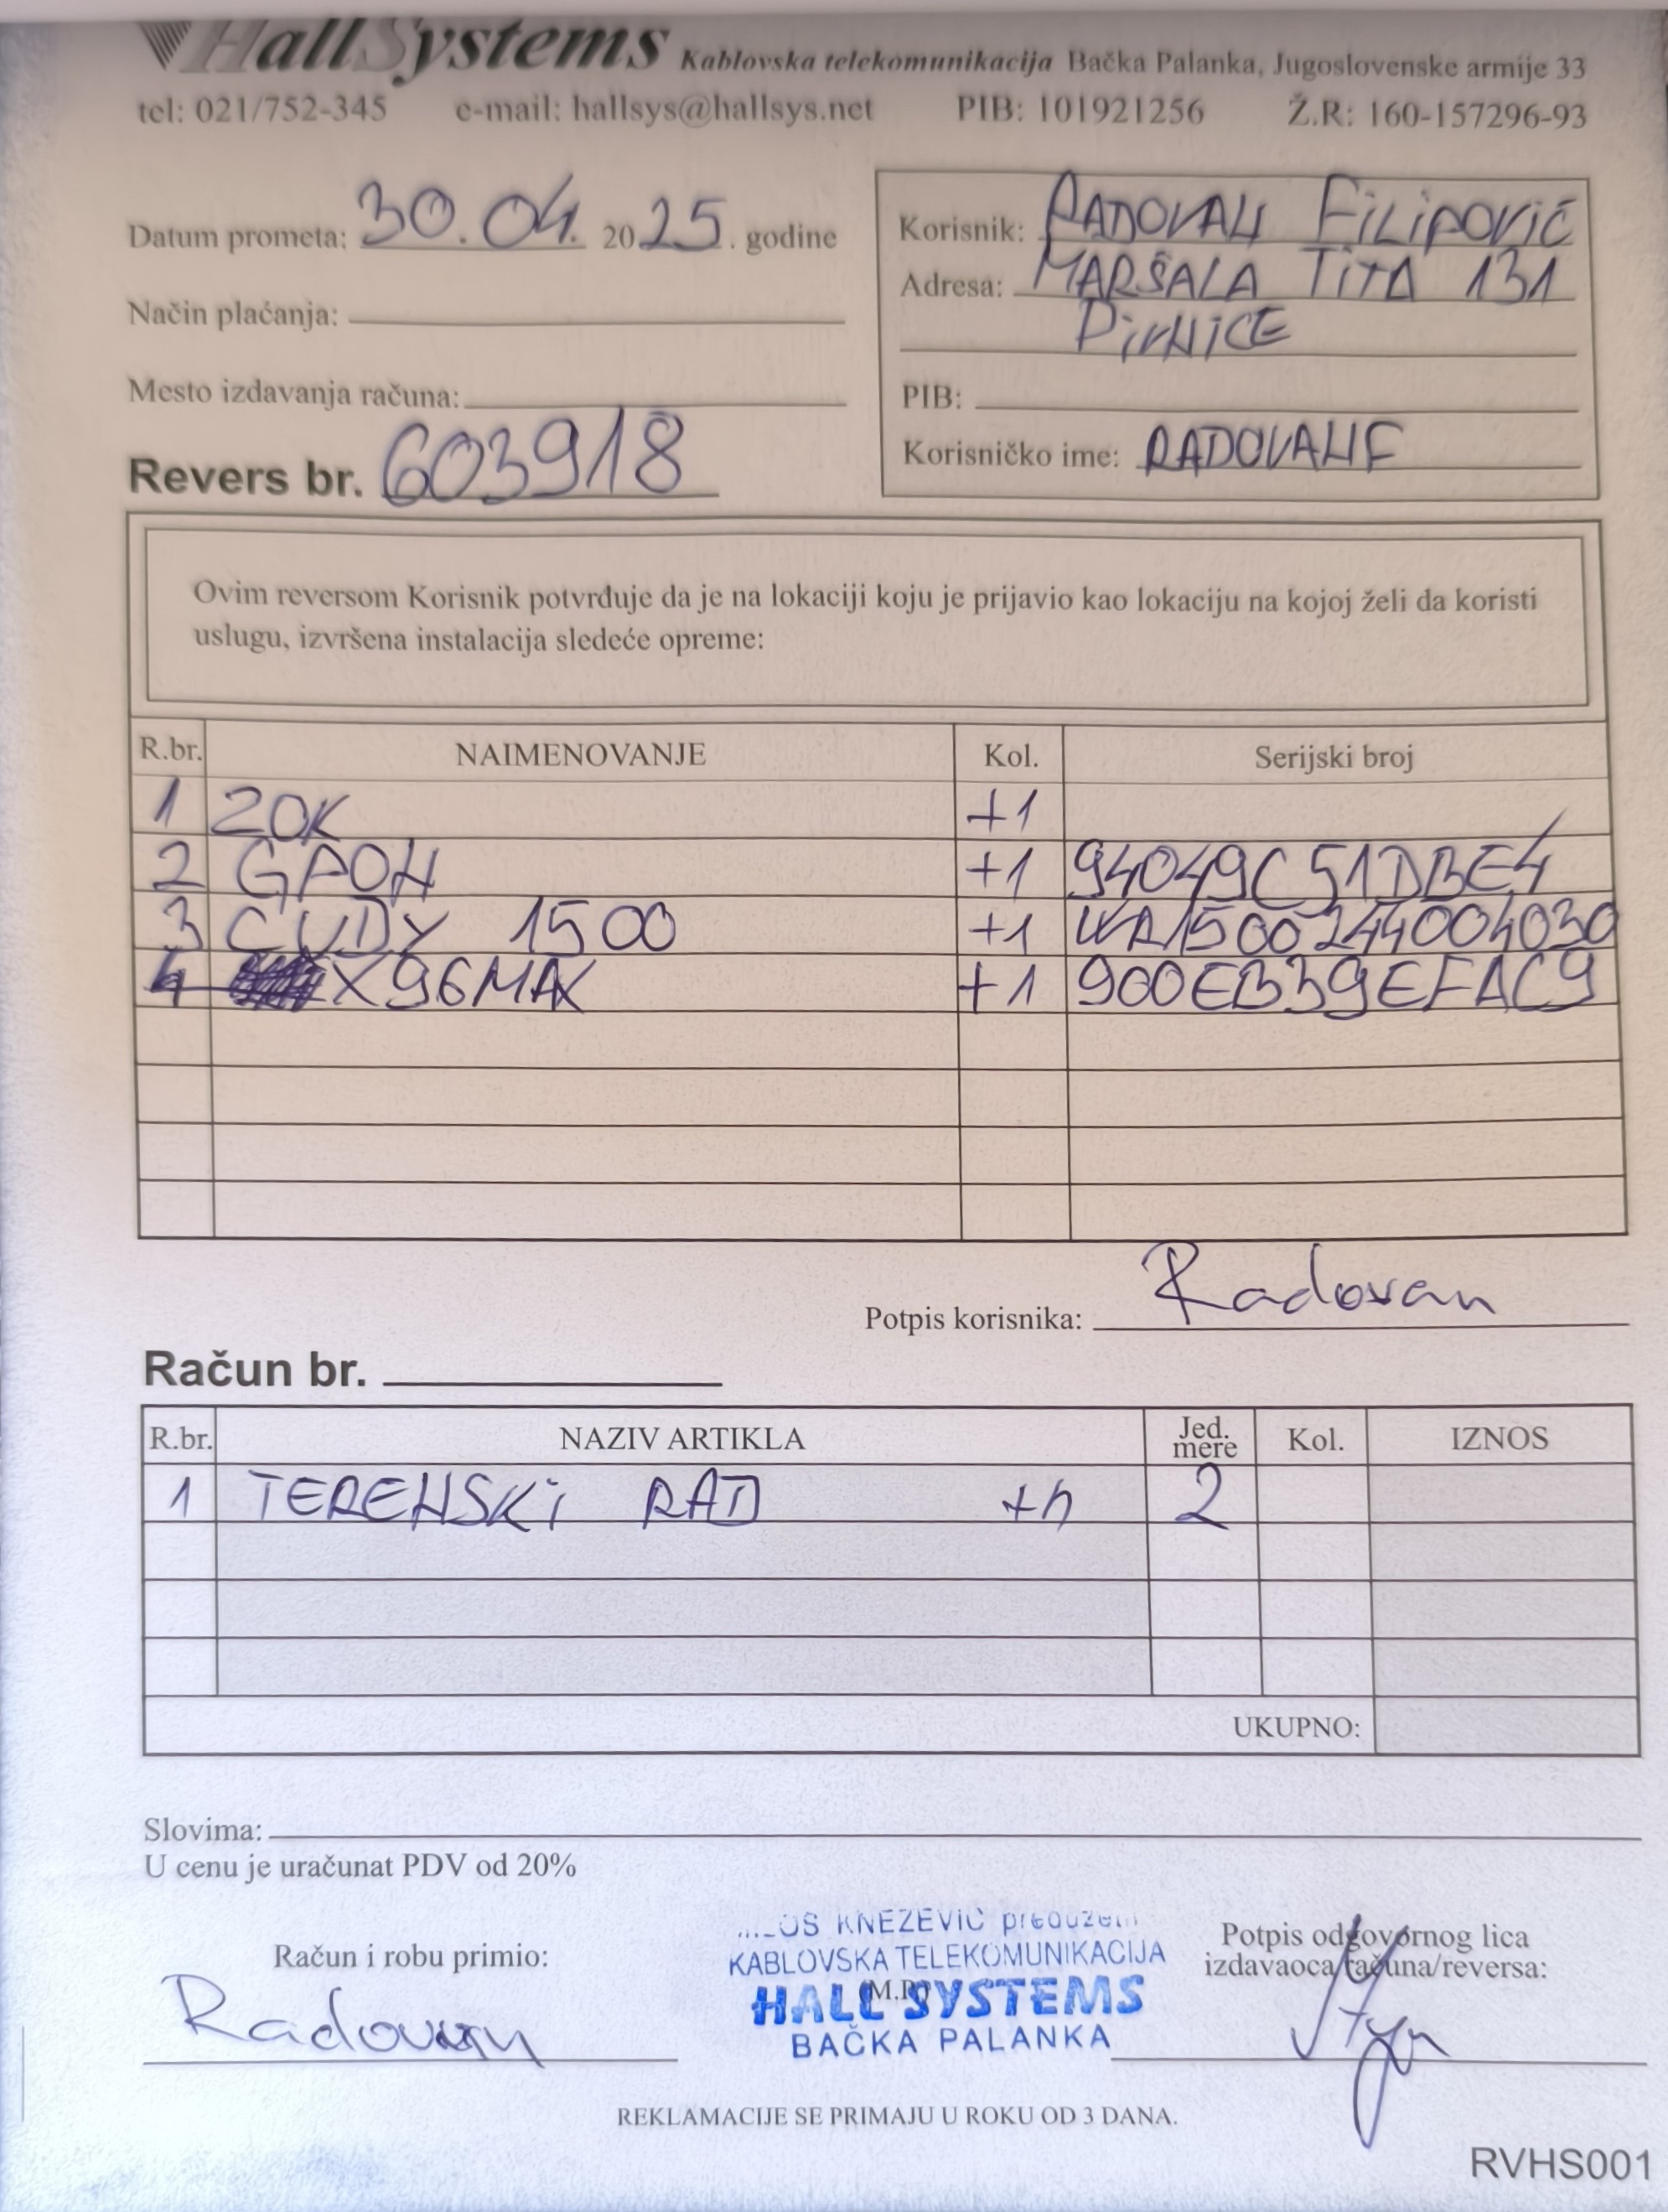 HallSystems Kablovska telekomunikacija Bačka Palanka, Jugoslovenske armije 33
tel: 021/752-345 e-mail: hallsys@hallsys.net PIB: 101921256 Ž.R: 160-157296-93
Datum prometa: 30.04. 2025. godine
Način plaćanja:
Mesto izdavanja računa:
Revers br. 603918
Korisnik: RADOVAN FILIPOVIĆ
Adresa: MARŠALA TITA 131
PIVNICE
PIB:
Korisničko ime: RADOVANF
Ovim reversom Korisnik potvrđuje da je na lokaciji koju je prijavio kao lokaciju na kojoj želi da koristi
uslugu, izvršena instalacija sledeće opreme:
R.br. NAIMENOVANJE Kol. Serijski broj
1 ZOK +1
2 GPON +1 94049C51DBE4
3 CUDY 1500 +1 WR1500244004030
4 X96MAX +1 900EB39EFAC9
Potpis korisnika: Radovan
Račun br.
R.br. NAZIV ARTIKLA Jed. mere Kol. IZNOS
1 TERENSKI RAD +h 2
UKUPNO:
Slovima:
U cenu je uračunat PDV od 20%
Račun i robu primio:
Radovan
KNEŽEVIĆ preduzetn
KABLOVSKA TELEKOMUNIKACIJA
(M.P.)
HALL SYSTEMS
BAČKA PALANKA
Potpis odgovornog lica
izdavaoca računa/reversa:
REKLAMACIJE SE PRIMAJU U ROKU OD 3 DANA.
RVHS001